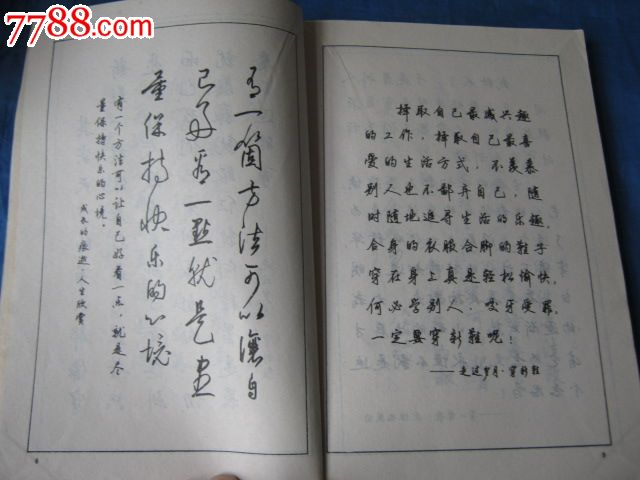 7788.com
有一箇方法可以讓自
己好看一點就是盡
量保持快乐的心境
有一个方法可以让自己好看一点，就是尽
量保持快乐的心境。
成长的痕迹·人生欣赏
择取自己最感兴趣
的工作，择取自己最喜
爱的生活方式，不羡慕
别人也不鄙弃自己，随
时随地追寻生活的乐趣，
合身的衣服合脚的鞋子
穿在身上真是轻松愉快，
何必学别人，咬牙受罪，
一定要穿新鞋呢！
——走过岁月·穿新鞋